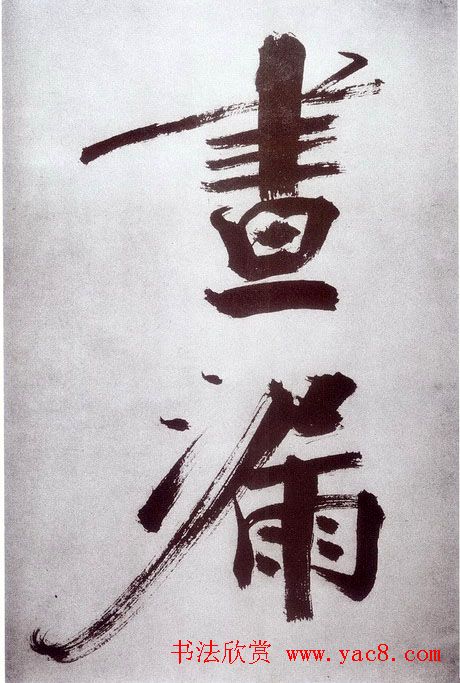 晝漏
书法欣赏 www.yac8.com